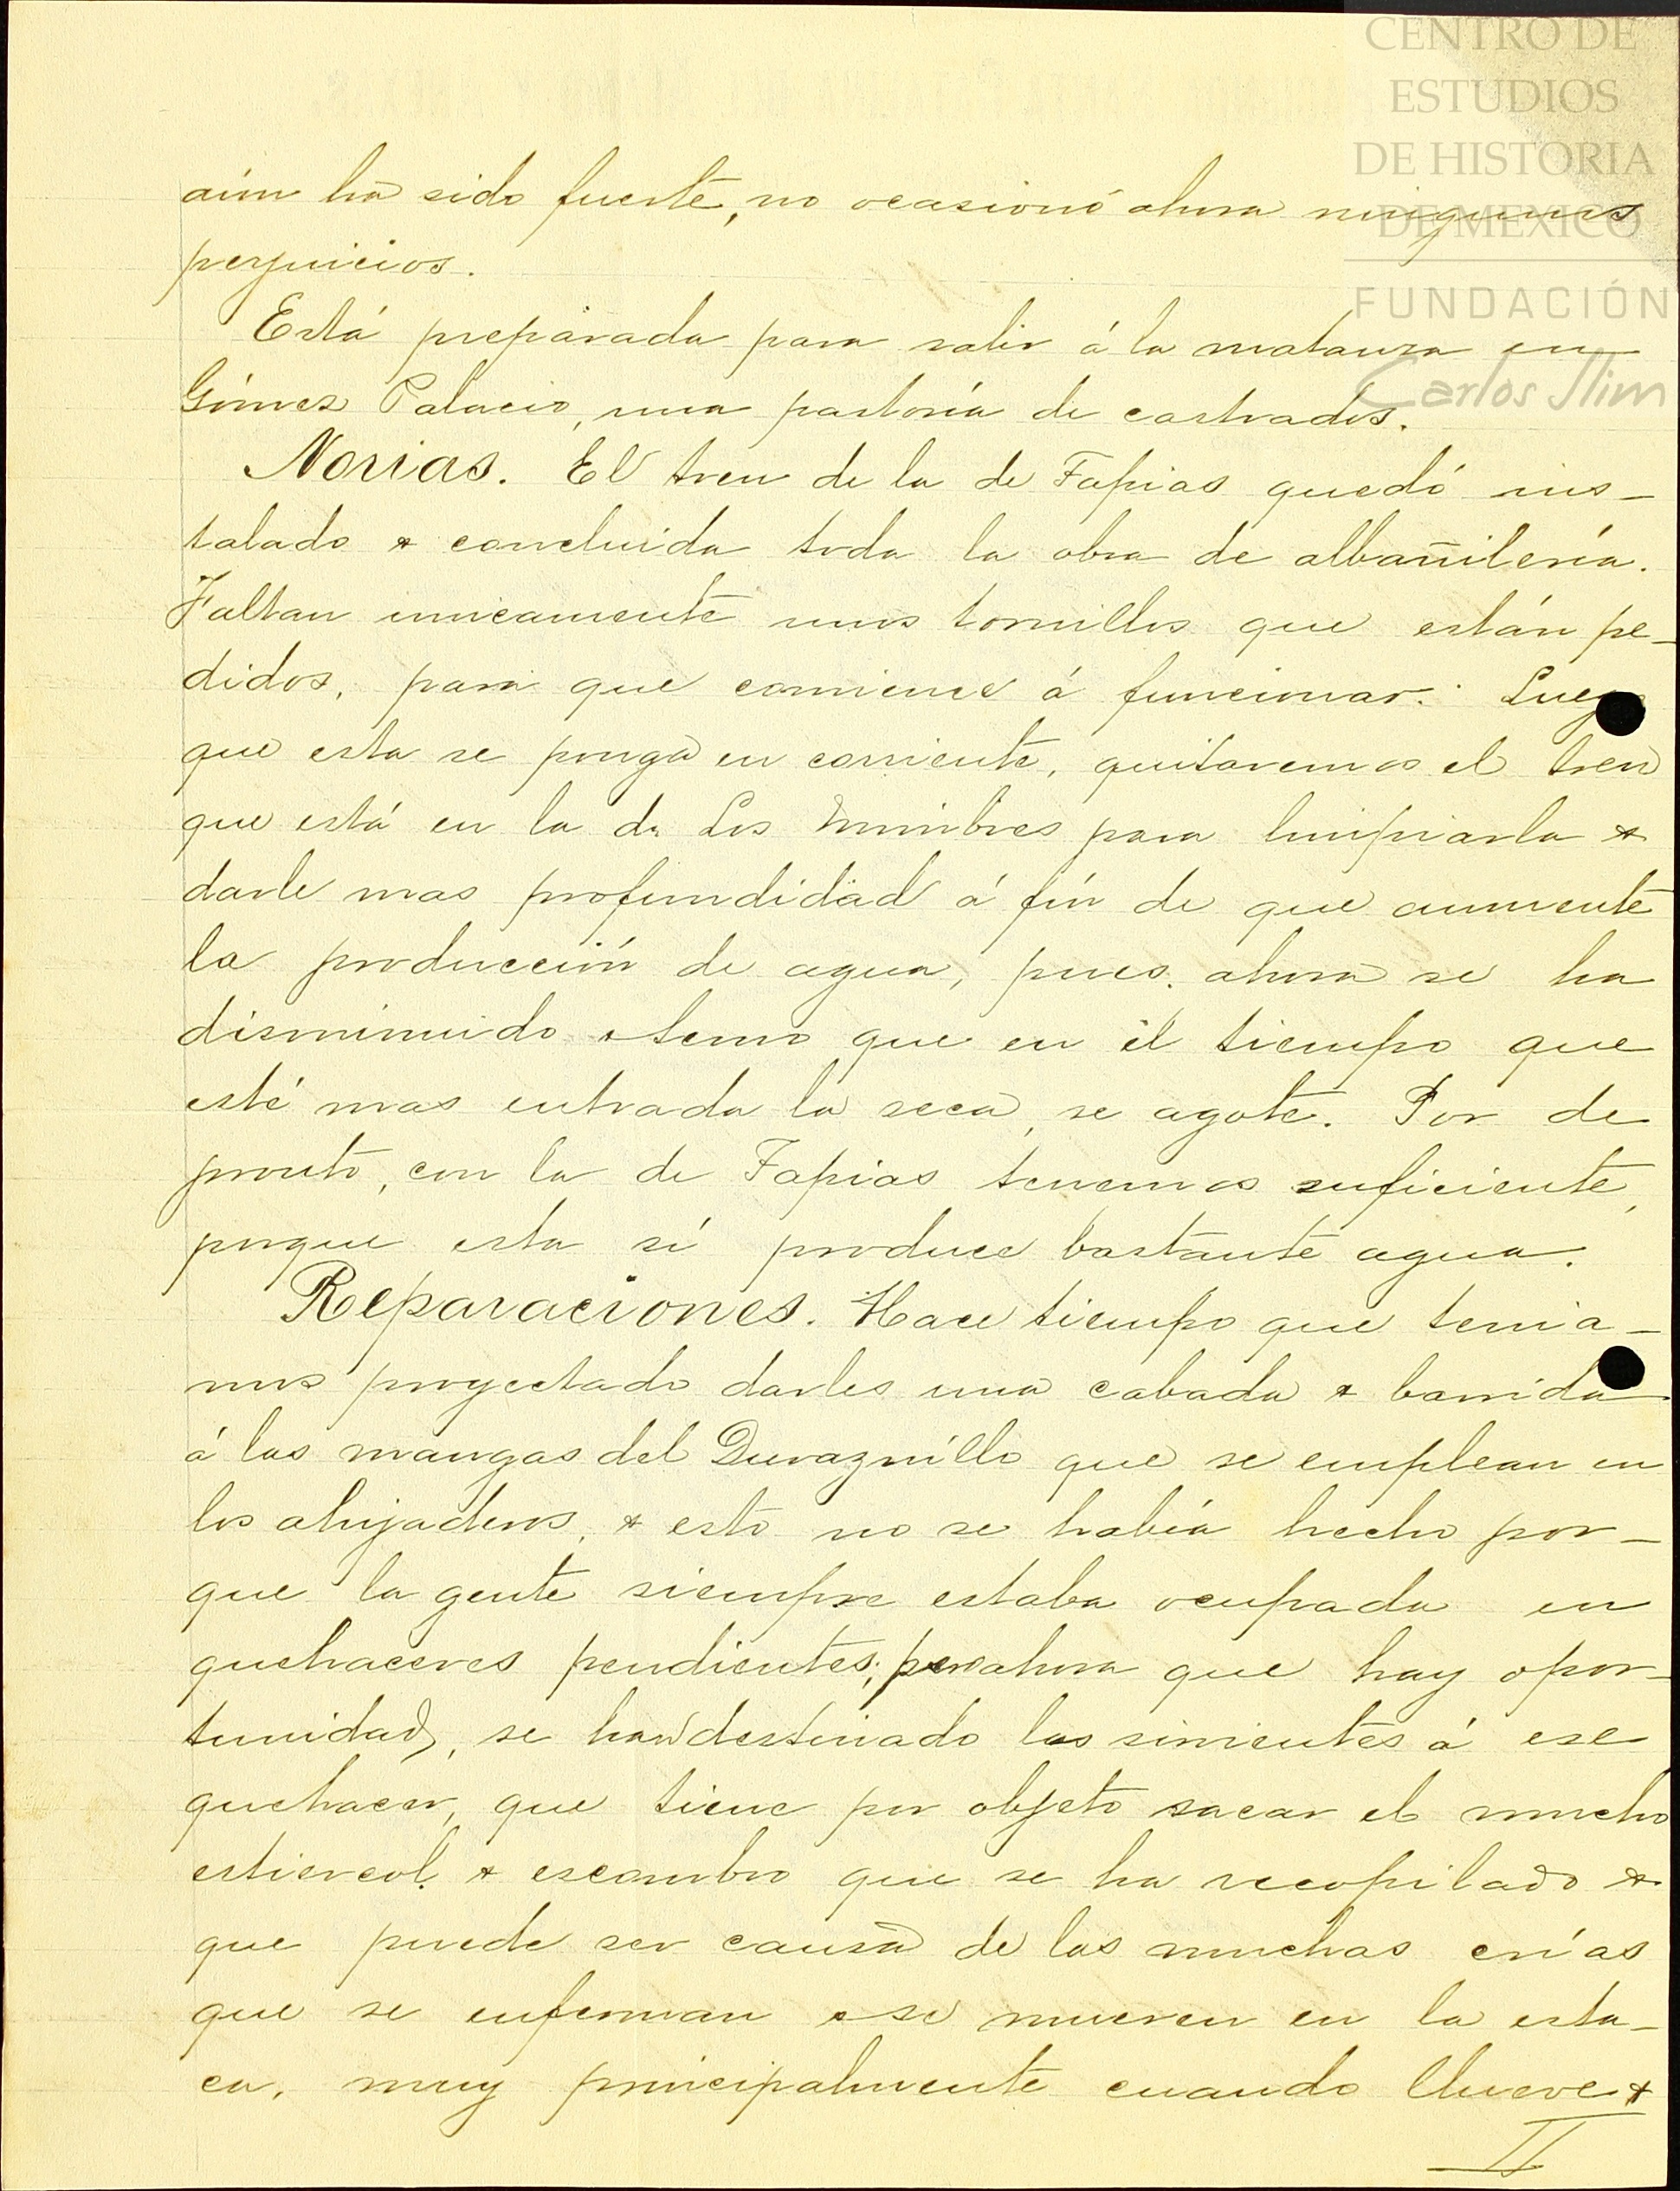 CENTRO DE
ESTUDIOS
DE HISTORIA
DE MEXICO
FUNDACIÓN
Carlos Slim
aún ha sido fuerte, no ocasionó ahora ningunos
perjuicios.
Está preparada para salir á la matanza en
Gómez Palacio, una pastoría de castrados.
Norias. El tren de la de Tapias quedó ins-
talado & concluida toda la obra de albañilería.
Faltan unicamente unos tornillos que están pe-
didos, para que comience á funcionar. Luego
que esta se ponga en corriente, quitaremos el tren
que está en la de Los Mimbres para limpiarla &
darle mas profundidad á fin de que aumente
la producción de agua, pues ahora se ha
disminuido & temo que en el tiempo que
esté mas entrada la seca, se agote. Por de
pronto, con la de Tapias tenemos suficiente,
porque esta sí produce bastante agua.
Reparaciones. Hace tiempo que tenia-
mos proyectado darles una cabada & barrida
á las mangas del Duraznillo que se emplean en
los ahijaderos, & esto no se habia hecho por-
que la gente siempre estaba ocupada en
quehaceres pendientes; pero ahora que hay opor-
tunidad, se han destinado los sirvientes á ese
quehacer, que tiene por objeto sacar el mucho
estiercol & escombro que se ha recopilado &
que puede ser causa de las muchas crías
que se enferman & se mueren en la esta-
ca, muy principalmente cuando llueve &
II